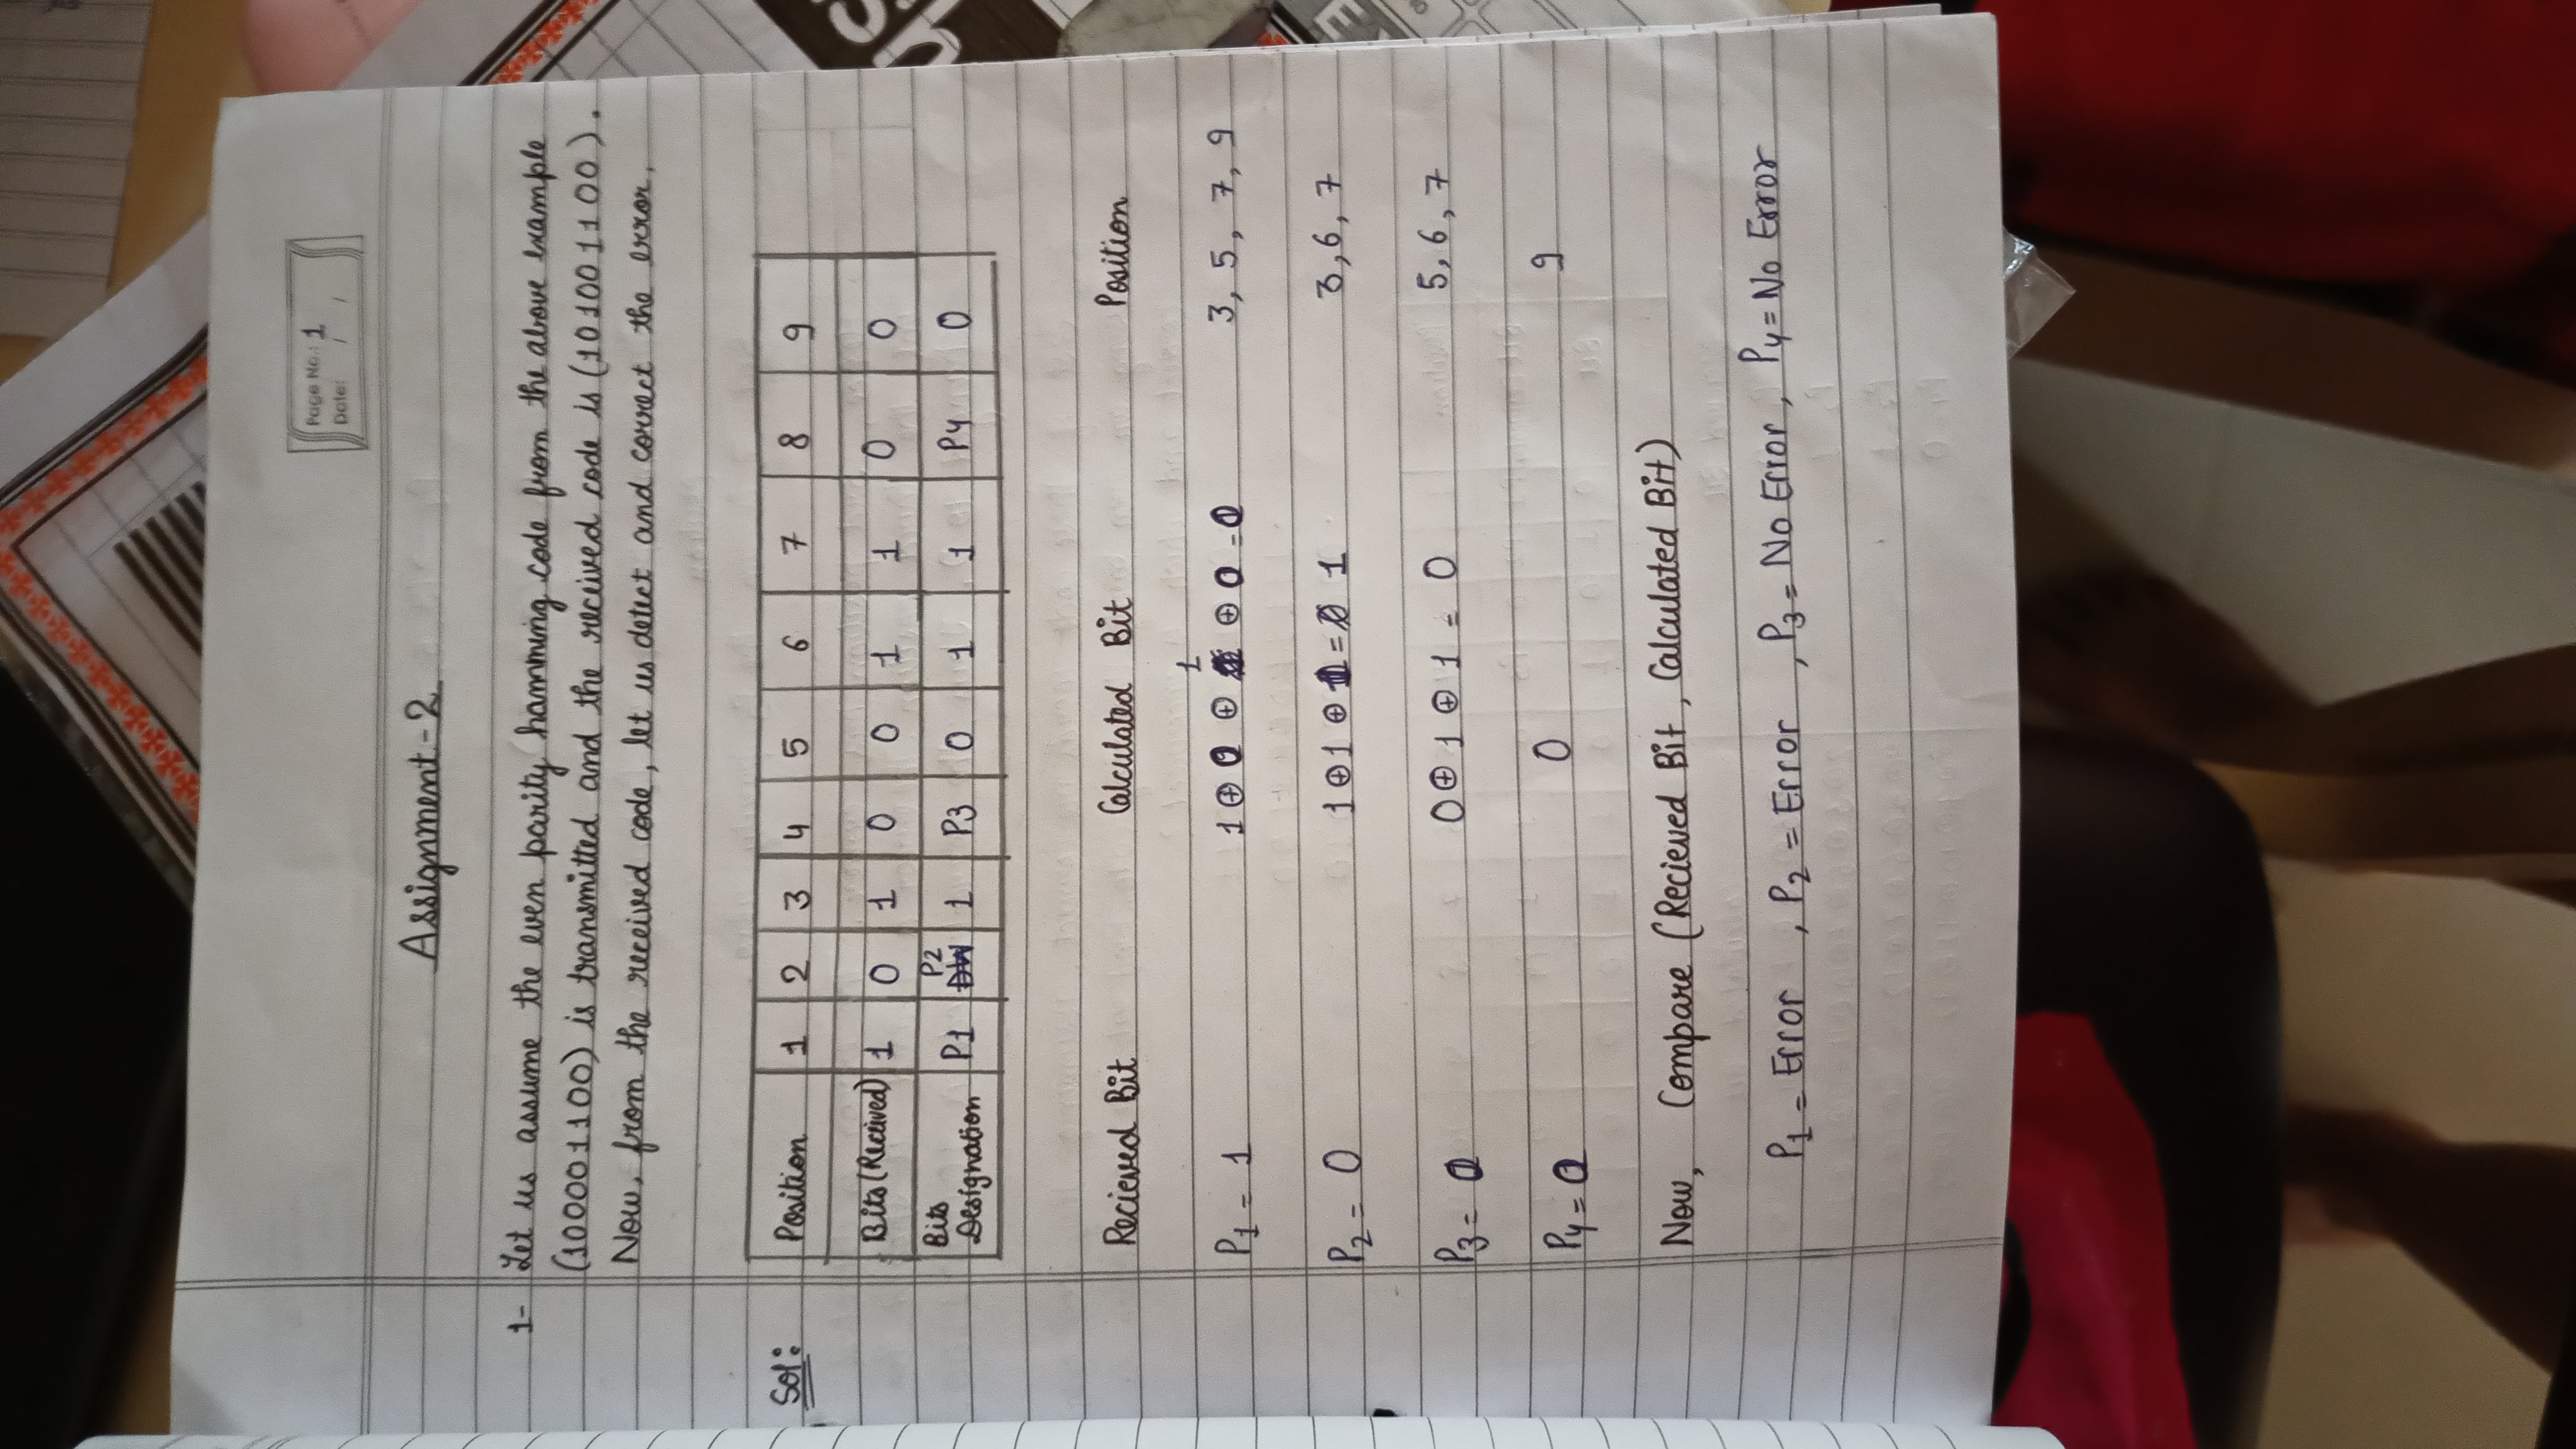 Page No.: 1
Date: / /
Assignment-2
1- Let us assume the even parity hamming code from the above example
(100001100) is transmitted and the received code is (101001100).
Now, from the received code, let us detect and correct the error.
Sol:
Position 1 2 3 4 5 6 7 8 9
Bits (Received) 1 0 1 0 0 1 1 0 0
P2
Bits Designation P1 1 P3 0 1 1 P4 0
Recieved Bit Calculated Bit Position
1
P1 = 1 1 ⊕ 0 ⊕ ⊕ 0 = 0 3, 5, 7, 9
P2 = 0 1 ⊕ 1 ⊕ 1 = 1 3, 6, 7
P3 = 0 0 ⊕ 1 ⊕ 1 = 0 5, 6, 7
P4 = 0 0 9
Now, Compare (Recieved Bit, Calculated Bit)
P1 = Error , P2 = Error , P3 = No Error, P4 = No Error